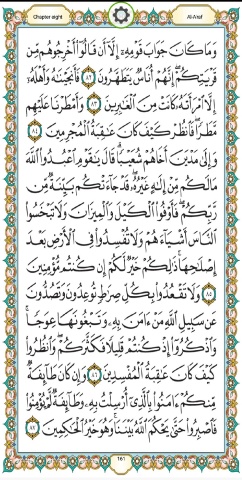 Chapter eight Al-Araf
وَمَا كَانَ جَوَابَ قَوْمِهِ إِلَّا أَن قَالُوا أَخْرِجُوهُم مِّن
قَرْيَتِكُمْ إِنَّهُمْ أُنَاسٌ يَتَطَهَّرُونَ ٨٢ فَأَنجَيْنَاهُ وَأَهْلَهُ
إِلَّا امْرَأَتَهُ كَانَتْ مِنَ الْغَابِرِينَ ٨٣ وَأَمْطَرْنَا عَلَيْهِم
مَّطَرًا فَانظُرْ كَيْفَ كَانَ عَاقِبَةُ الْمُجْرِمِينَ ٨٤
وَإِلَى مَدْيَنَ أَخَاهُمْ شُعَيْبًا قَالَ يَا قَوْمِ اعْبُدُوا اللَّهَ
مَا لَكُم مِّنْ إِلَهٍ غَيْرُهُ قَدْ جَاءَتْكُم بَيِّنَةٌ مِّن
رَّبِّكُمْ فَأَوْفُوا الْكَيْلَ وَالْمِيزَانَ وَلَا تَبْخَسُوا
النَّاسَ أَشْيَاءَهُمْ وَلَا تُفْسِدُوا فِي الْأَرْضِ بَعْدَ
إِصْلَاحِهَا ذَلِكُمْ خَيْرٌ لَّكُمْ إِن كُنتُم مُّؤْمِنِينَ
٨٥ وَلَا تَقْعُدُوا بِكُلِّ صِرَاطٍ تُوعِدُونَ وَتَصُدُّونَ
عَن سَبِيلِ اللَّهِ مَنْ آمَنَ بِهِ وَتَبْغُونَهَا عِوَجًا
وَاذْكُرُوا إِذْ كُنتُمْ قَلِيلًا فَكَثَّرَكُمْ وَانظُرُوا
كَيْفَ كَانَ عَاقِبَةُ الْمُفْسِدِينَ ٨٦ وَإِن كَانَ طَائِفَةٌ
مِّنكُمْ آمَنُوا بِالَّذِي أُرْسِلْتُ بِهِ وَطَائِفَةٌ لَّمْ يُؤْمِنُوا
فَاصْبِرُوا حَتَّى يَحْكُمَ اللَّهُ بَيْنَنَا وَهُوَ خَيْرُ الْحَاكِمِينَ ٨٧
161